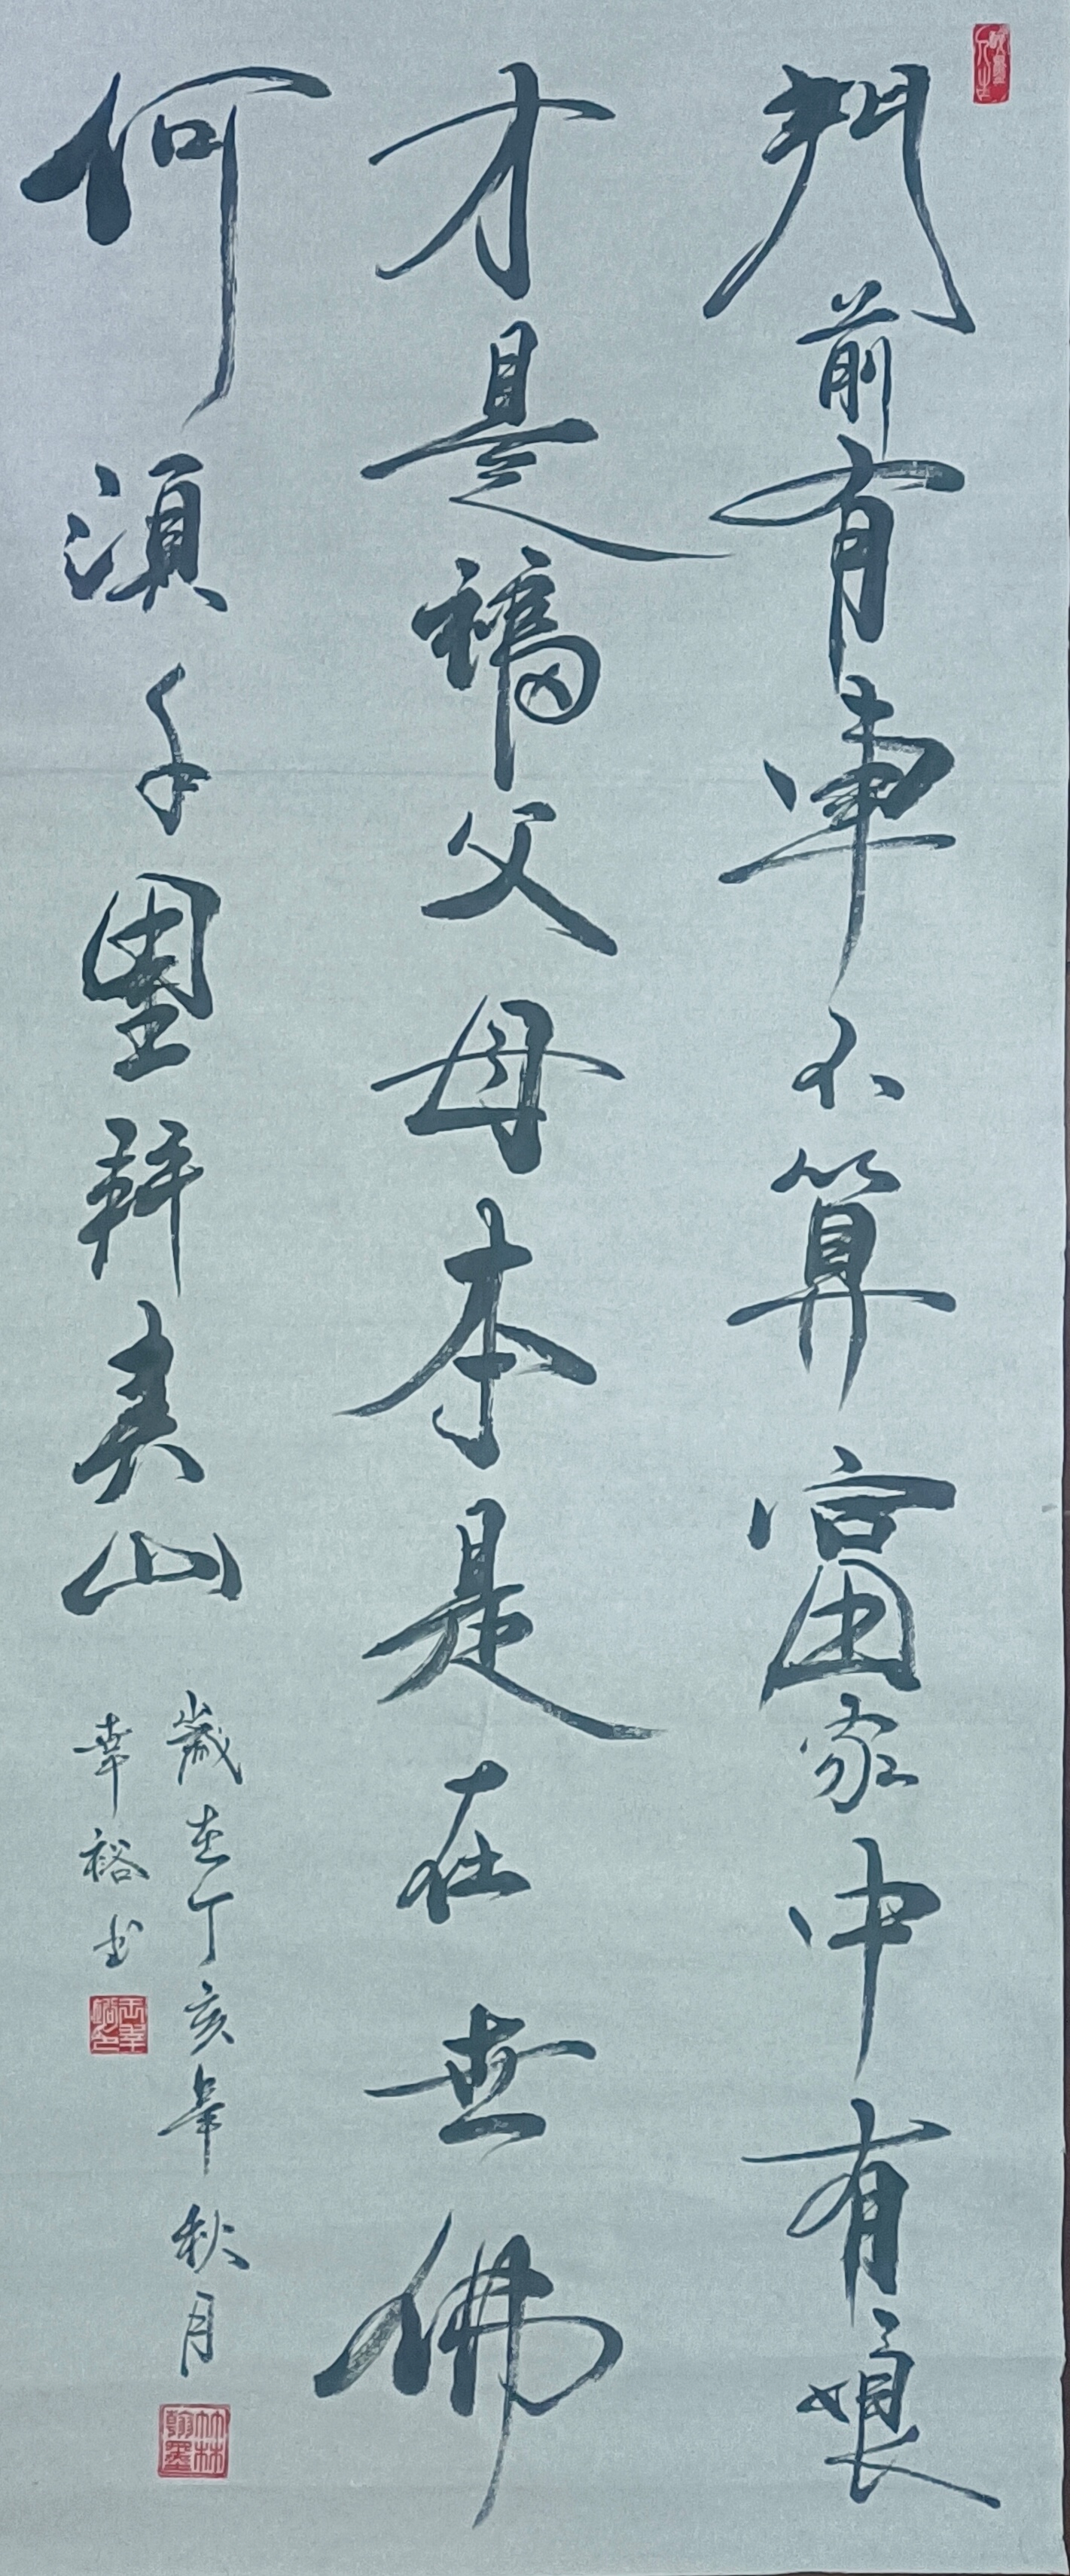 門前有車不算富家中有娘
才是福父母本是在世佛
何須千里拜灵山
歲在丁亥年秋月
幸裕书
竹林翰墨